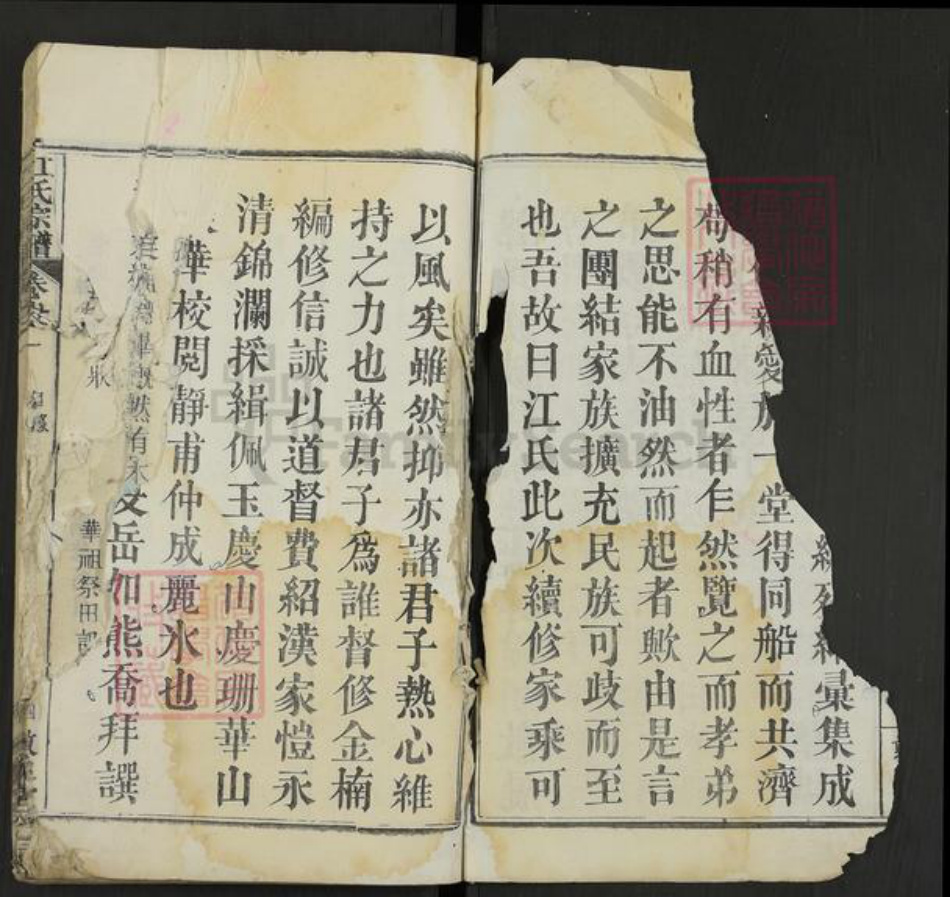 彙集成
親愛族一堂得同船而共濟
苟稍有血性者乍然覽之而孝弟
之思能不油然而起者歟由是言
之團結家族擴充民族可歧而至
也吾故曰江氏此次續修家乘可
以風矣雖然抑亦諸君子熱心維
持之力也諸君子為誰督修金楠
編修信誠以道督費紹漢家愷永
清錦瀾採緝佩玉慶山慶珊華山
華校閱靜甫仲成麗水也
岳加熊喬拜譔
華祖祭田
江氏宗譜
FamilySearch